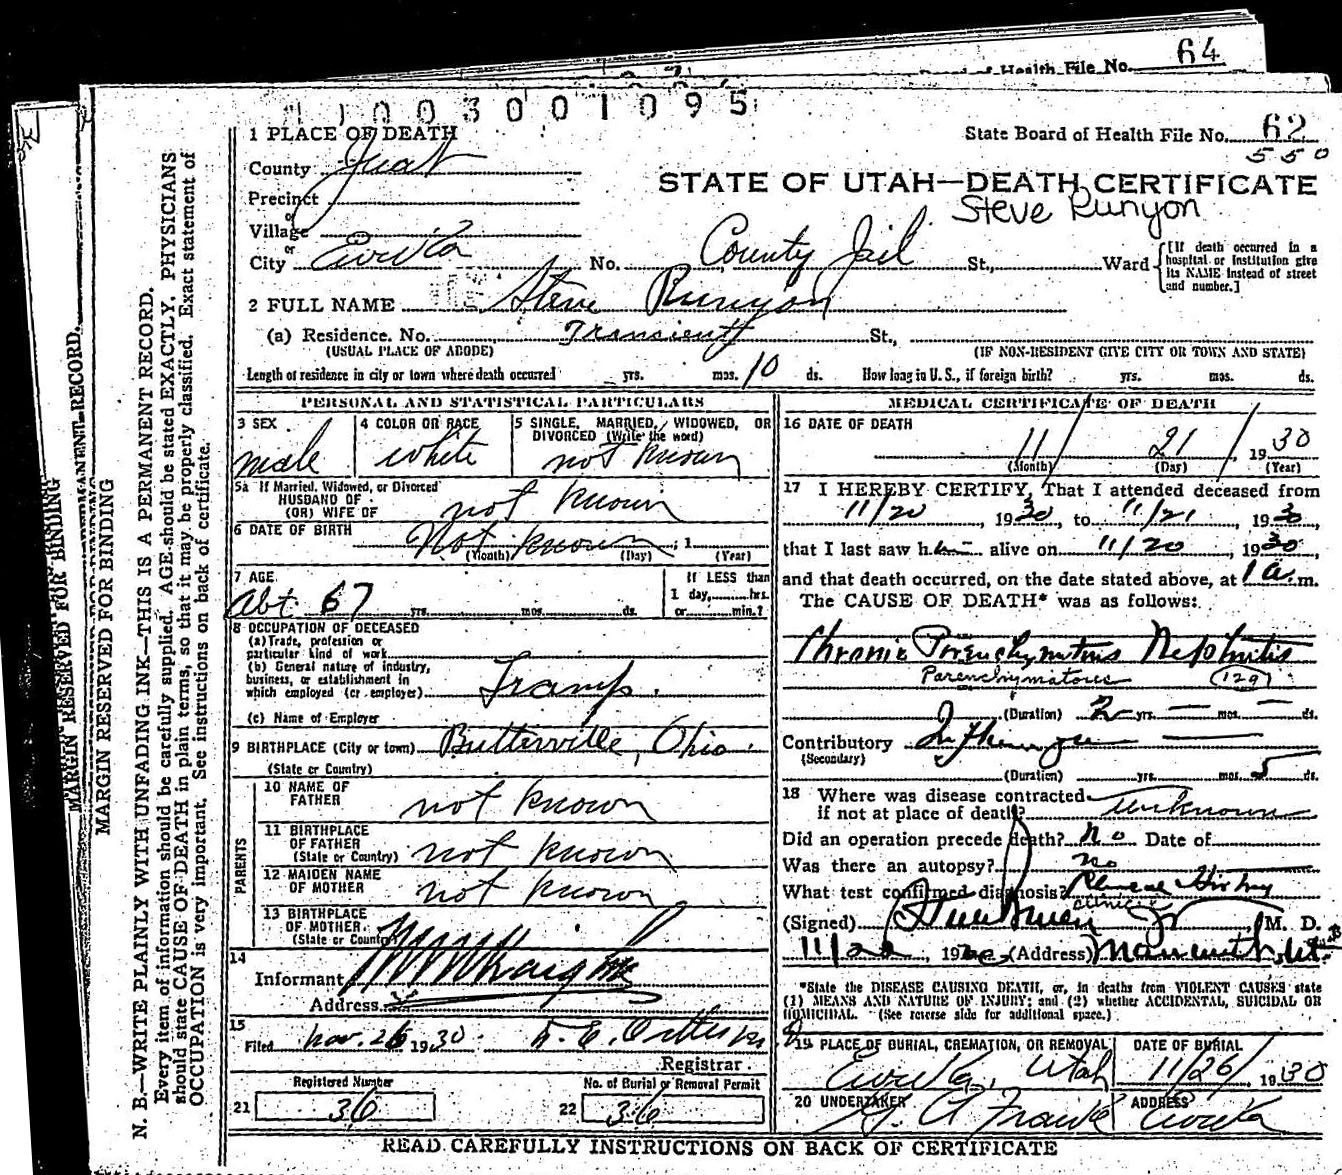 64
Board of Health File No.
1003001095
1 PLACE OF DEATH
State Board of Health File No. 62
550
County Juab
STATE OF UTAH—DEATH CERTIFICATE
Steve Runyon
Precinct
or
Village
or
City Eureka No. County Jail St., Ward
[If death occurred in a
hospital or institution give
its NAME instead of street
and number.]
2 FULL NAME Steve Runyon
(a) Residence. No. Transient St.,
(USUAL PLACE OF ABODE) (IF NON-RESIDENT GIVE CITY OR TOWN AND STATE)
Length of residence in city or town where death occurred yrs. mos. 10 ds. How long in U. S., if foreign birth? yrs. mos. ds.
PERSONAL AND STATISTICAL PARTICULARS
3 SEX
male
4 COLOR OR RACE
white
5 SINGLE, MARRIED, WIDOWED, OR
DIVORCED (Write the word)
not known
5a If Married, Widowed, or Divorced
HUSBAND OF
(OR) WIFE OF not known
6 DATE OF BIRTH
Not known , 1
(Month) (Day) (Year)
7 AGE
Abt. 67 yrs. mos. ds.
If LESS than
1 day, hrs.
or min.?
8 OCCUPATION OF DECEASED
(a) Trade, profession or
particular kind of work
(b) General nature of industry,
business, or establishment in
which employed (or employer) Tramp.
(c) Name of Employer
9 BIRTHPLACE (City or town) Butterville, Ohio.
(State or Country)
PARENTS
10 NAME OF
FATHER not known
11 BIRTHPLACE
OF FATHER
(State or Country) not known
12 MAIDEN NAME
OF MOTHER not known
13 BIRTHPLACE
OF MOTHER
(State or Country)
14
Informant
Address
15
Filed Nov. 26 1930
Registrar
Registered Number
21 36
No. of Burial or Removal Permit
22 36
MEDICAL CERTIFICATE OF DEATH
16 DATE OF DEATH
11 21, 1930
(Month) (Day) (Year)
17 I HEREBY CERTIFY, That I attended deceased from
11/20, 1930 to 11/21, 1930,
that I last saw him alive on 11/20, 1930,
and that death occurred, on the date stated above, at 1 a.m.
The CAUSE OF DEATH* was as follows:
Chronic Parenchymatous Nephritis
Parenchymatous (129)
(Duration) 2 yrs. — mos. — ds.
Contributory Influenza
(Secondary)
(Duration) yrs. mos. 5 ds.
18 Where was disease contracted
if not at place of death? unknown
Did an operation precede death? No Date of
Was there an autopsy? no
What test confirmed diagnosis?
clinical
(Signed) M. D.
11/22, 1930 (Address) Mammoth Ut.
*State the DISEASE CAUSING DEATH, or, in deaths from VIOLENT CAUSES state
(1) MEANS AND NATURE OF INJURY; and (2) whether ACCIDENTAL, SUICIDAL OR
HOMICIDAL. (See reverse side for additional space.)
19 PLACE OF BURIAL, CREMATION, OR REMOVAL
Eureka, Utah
DATE OF BURIAL
11/26, 1930
20 UNDERTAKER
ADDRESS
Eureka
READ CAREFULLY INSTRUCTIONS ON BACK OF CERTIFICATE
MARGIN RESERVED FOR BINDING
MARGIN RESERVED FOR BINDING
N. B.—WRITE PLAINLY WITH UNFADING INK—THIS IS A PERMANENT RECORD.
Every item of information should be carefully supplied. AGE should be stated EXACTLY. PHYSICIANS
should state CAUSE OF DEATH in plain terms, so that it may be properly classified. Exact statement of
OCCUPATION is very important. See instructions on back of certificate.